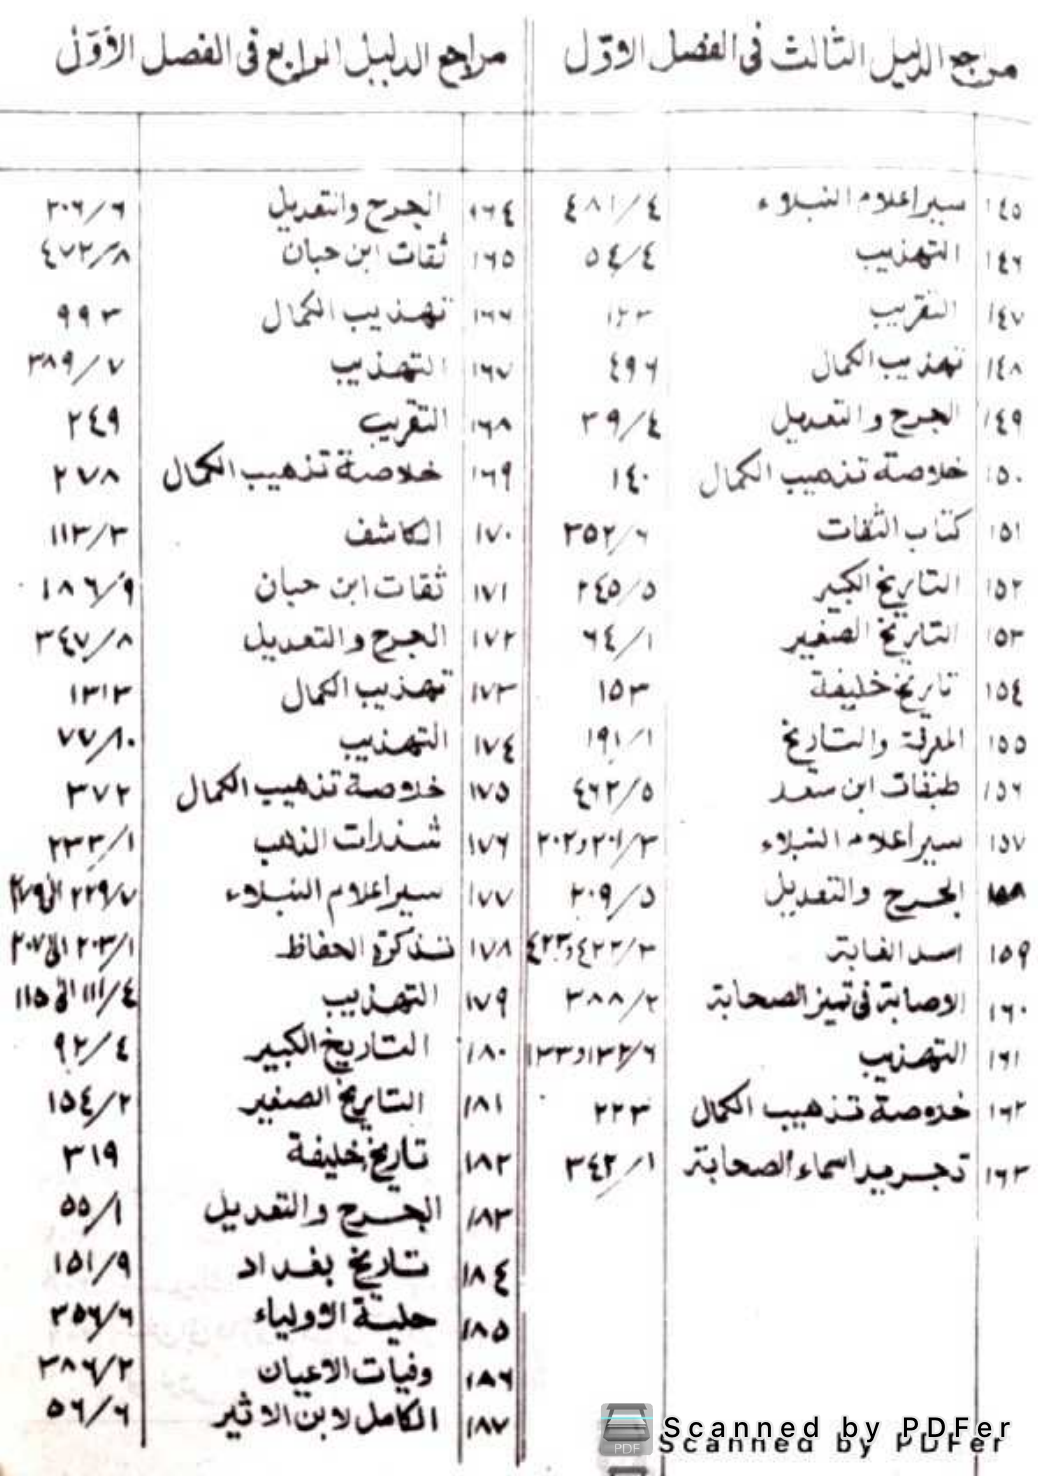 مراجع الدليل الثالث فى الفصل الاوّل
١٤٥ سير اعلام النبلاء ٤٨١/٤
١٤٦ التهذيب ٥٤/٤
١٤٧ التقريب ١٢٣
١٤٨ تهذيب الكمال ٤٩٦
١٤٩ الجرح والتعديل ٣٩/٤
١٥٠ خلاصة تذهيب الكمال ١٤٠
١٥١ كتاب الثقات ٣٥٢/٦
١٥٢ التاريخ الكبير ٢٤٥/٥
١٥٣ التاريخ الصغير ٦٤/١
١٥٤ تاريخ خليفة ١٥٣
١٥٥ المعرفة والتاريخ ١٩١/١
١٥٦ طبقات ابن سعد ٤٦٢/٥
١٥٧ سير اعلام النبلاء ٢٠١/٣و٢٠٢
١٥٨ الجرح والتعديل ٢٠٩/٥
١٥٩ اسد الغابة ٤٢٢/٣و٤٢٣
١٦٠ الاصابة فى تميز الصحابة ٣٨٨/٢
١٦١ التهذيب ١٣٢/٦و١٣٣
١٦٢ خلاصة تذهيب الكمال ٢٢٣
١٦٣ تجريد اسماء الصحابة ٣٤٢/١
مراجع الدليل الرابع فى الفصل الأوّل
١٦٤ الجرح والتعديل ٢٠٦/٦
١٦٥ ثقات ابن حبان ٤٧٢/٨
١٦٦ تهذيب الكمال ٩٩٣
١٦٧ التهذيب ٣٨٩/٧
١٦٨ التقريب ٢٤٩
١٦٩ خلاصة تذهيب الكمال ٢٧٨
١٧٠ الكاشف ١١٣/٣
١٧١ ثقات ابن حبان ١٨٦/٩
١٧٢ الجرح والتعديل ٣٤٧/٨
١٧٣ تهذيب الكمال ١٣١٣
١٧٤ التهذيب ٧٧/١٠
١٧٥ خلاصة تذهيب الكمال ٣٧٢
١٧٦ شذرات الذهب ٢٣٣/١
١٧٧ سير اعلام النبلاء ٢٢٩/٧ الى ٢٧٩
١٧٨ تذكرة الحفاظ ٢٠٣/١ الى ٢٠٧
١٧٩ التهذيب ١١١/٤ الى ١١٥
١٨٠ التاريخ الكبير ٩٢/٤
١٨١ التاريخ الصغير ١٥٤/٢
١٨٢ تاريخ خليفة ٣١٩
١٨٣ الجرح والتعديل ٥٥/١
١٨٤ تاريخ بغداد ١٥١/٩
١٨٥ حلية الاولياء ٣٥٦/٦
١٨٦ وفيات الاعيان ٣٨٦/٢
١٨٧ الكامل لابن الاثير ٥٦/٦
PDF
Scanned by PDFer
Scanned by PDFer